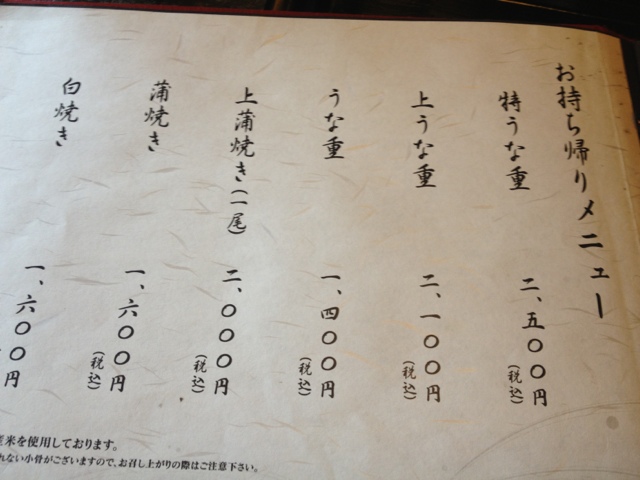 お持ち帰りメニュー
特うな重 二、五〇〇円(税込)
上うな重 二、一〇〇円(税込)
うな重 一、四〇〇円(税込)
上蒲焼き(一尾) 二、〇〇〇円(税込)
蒲焼き 一、六〇〇円(税込)
白焼き 一、六〇〇円
米を使用しております。
れない小骨がございますので、お召し上がりの際はご注意下さい。